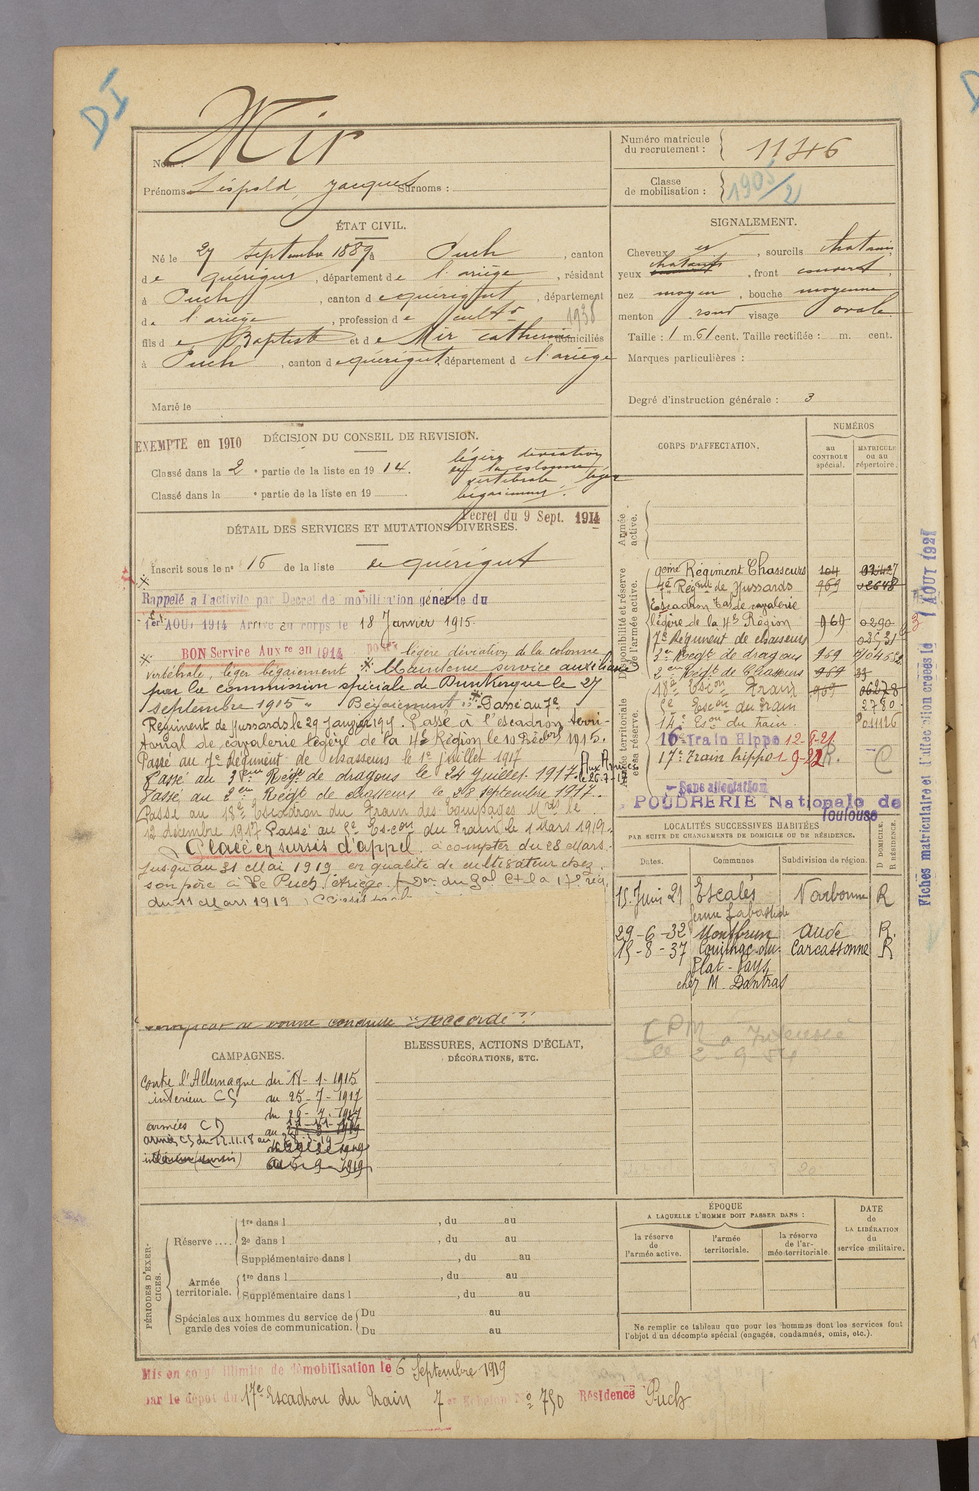 DI
Nom : Mir
Prénoms : Léopold, Jacques Surnoms :
Numéro matricule du recrutement : 1146
Classe de mobilisation : 1905/2
ÉTAT CIVIL.
Né le 27 septembre 1889 à Puch, canton
de quérigut, département de l'ariège, résidant
à Puch, canton de quérigut, département
de l'ariège, profession de cultr 1938
fils de Baptiste et de Mir catherine domiciliés
à Puch, canton de quérigut, département d l'ariège
Marié le
SIGNALEMENT.
Cheveux et, sourcils chatains
yeux chatains, front couvert,
nez moyen, bouche moyenne
menton rond visage ovale
Taille : 1 m. 61 cent. Taille rectifiée : m. cent.
Marques particulières :
Degré d'instruction générale : 3
EXEMPTE en 1910
DÉCISION DU CONSEIL DE REVISION.
Classé dans la 2e partie de la liste en 1914.
Classé dans la e partie de la liste en 19
légère déviation
de la colonne
vertébrale léger
bégaiement.
Decret du 9 Sept. 1914
DÉTAIL DES SERVICES ET MUTATIONS DIVERSES.
Inscrit sous le n° 16 de la liste de quérigut
Rappelé a l'activité par Decret de mobilisation générale du
1er AOUT 1914 Arrivé au corps le 18 Janvier 1915.
BON Service Auxre en 1914 pour légère déviation de la colonne
vertébrale, léger bégaiement * Maintenu service auxiliaire
par la commission spéciale de Dunkerque le 27
septembre 1915 " Bégaiement " * Passé au 7e
Régiment de Hussards le 29 janvier 191 . Passé à l'escadron terri-
torial de cavalerie légère de la 4e Région le 10 Décbre 1915.
Passé au 7e Régiment de Chasseurs le 1er juillet 1917
Passé au 3eme Regt de dragons le 24 Juillet 1917. Aux Armées le 26.7.17
Passé au 2eme Regt de chasseurs le 28 septembre 1917.
Passé au 18e Escadron du Train des Equipages Mres le
12 décembre 1917 Passé au 8e Escon du Train le 1 Mars 1919.
Placé en sursis d'appel, à compter du 28 Mars
Jusqu'au 31 Mai 1919 en qualité de cultivateur chez
son père à Le Puch, Ariège. Don du Gal Ct la 17e rég.
du 11 Mars 1919
certificat de bonne conduite "Accordé".
CORPS D'AFFECTATION.
NUMÉROS
au CONTROLE spécial.
MATRICULE ou au répertoire.
Armée active.
Disponibilité et réserve de l'armée active.
9eme Régiment Chasseurs 104
4e Régimt de Hussards 969 02648
Escadron Tal de cavalerie
légère de la 4e Région 969 0290
7e Régiment de chasseurs
3e Regt de dragons 969
2e Regt de Chasseurs 969
18e Escon Train 969 06278
8e Escon du Train 2780
Armée territoriale et sa réserve.
14e Eson du Train. 011116
16e Train Hippo 12-8-21
17e Train hippo 1-9-22 R. C
Sans affectation
POUDRERIE Nationale de
Toulouse
Fiches matriculaire et d'affectation créées le 1 AOUT 1921
LOCALITÉS SUCCESSIVES HABITÉES
PAR SUITE DE CHANGEMENTS DE DOMICILE OU DE RÉSIDENCE.
D DOMICILE. R RÉSIDENCE.
Dates. Communes Subdivision de région.
15. Juin 21 Escalès Narbonne R
ferme Labastide
29-6-32 Montbrun Aude R.
15-8-37 Conilhac-du- Carcassonne R
Plat-Pays
chez M. Dantras
CPM
CAMPAGNES.
contre l'Allemagne du 18-1-1915
intérieur CS au 25-7-1917
du 26-7-1917
armées CD au
armées CS du 12.11.18 au
intérieur (sursis)
au 5-9-1919
BLESSURES, ACTIONS D'ÉCLAT,
DÉCORATIONS, ETC.
PÉRIODES D'EXERCICES.
Réserve....
1re dans l , du au
2e dans l , du au
Supplémentaire dans l , du au
Armée territoriale.
1re dans l , du au
Supplémentaire dans l , du au
Spéciales aux hommes du service de garde des voies de communication.
Du au
Du au
ÉPOQUE
A LAQUELLE L'HOMME DOIT PASSER DANS :
la réserve de l'armée active.
l'armée territoriale.
la réserve de l'armée territoriale.
DATE de LA LIBÉRATION du service militaire.
Ne remplir ce tableau que pour les hommes dont les services font
l'objet d'un décompte spécial (engagés, condamnés, omis, etc.).
Mis en congé illimité de démobilisation le 6 Septembre 1919
par le dépôt du 17e Escadron du Train 7e Echelon N° 750 Résidence Puch